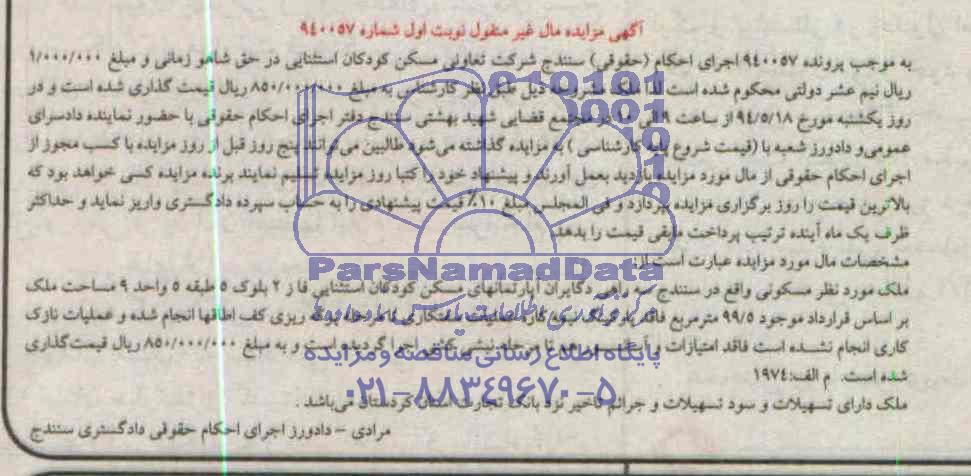 آگهی مزایده مال غیر منقول نوبت اول شماره ۹۴۰۰۵۷
به موجب پرونده ۹۴۰۰۵۷ اجرای احکام (حقوقی) سنندج شرکت تعاونی مسکن کودکان استثنایی در حق شاهو زمانی و مبلغ ۹/۰۰۰/۰۰۰
ریال نیم عشر دولتی محکوم شده است لذا ملک مشروحه ذیل طبق نظر کارشناسی به مبلغ ۸۵۰/۰۰۰/۰۰۰ ریال قیمت گذاری شده است و در
روز یکشنبه مورخ ۹۴/۵/۱۸ از ساعت ۹ الی ۱۰ در مجتمع قضایی شهید بهشتی سنندج دفتر اجرای احکام حقوقی با حضور نماینده دادسرای
عمومی و دادورز شعبه با (قیمت شروع پایه کارشناسی) به مزایده گذاشته می‌شود طالبین می‌توانند پنج روز قبل از روز مزایده با کسب مجوز از
اجرای احکام حقوقی از مال مورد مزایده بازدید بعمل آورند و پیشنهاد خود را کتبا روز مزایده تسلیم نمایند برنده مزایده کسی خواهد بود که
بالاترین قیمت را روز برگزاری مزایده بپردازد و فی المجلس مبلغ ۱۰٪ قیمت پیشنهادی را به حساب سپرده دادگستری واریز نماید و حداکثر
ظرف یک ماه آینده ترتیب پرداخت مابقی قیمت را بدهد.
مشخصات مال مورد مزایده عبارت است از:
ملک مورد نظر مسکونی واقع در سنندج سه راهی دگایران آپارتمانهای مسکن کودکان استثنایی فاز ۲ بلوک ۵ طبقه ۵ واحد ۹ مساحت ملک
بر اساس قرارداد موجود ۹۹/۵ مترمربع فاقد پارکینگ سفت کاری انجام شده و عملیات نازک
کاری انجام نشده است فاقد امتیازات اجرا گردیده است و به مبلغ ۸۵۰/۰۰۰/۰۰۰ ریال قیمت‌گذاری
شده است. م الف:۱۹۷۴
ملک دارای تسهیلات و سود تسهیلات و جرائم تاخیر نزد بانک تجارت استان کردستان می‌باشد.
مرادی – دادورز اجرای احکام حقوقی دادگستری سنندج
ParsNamadData
پایگاه اطلاع رسانی مناقصه و مزایده
۰۲۱-۸۸۳۴۹۶۷۰-۵